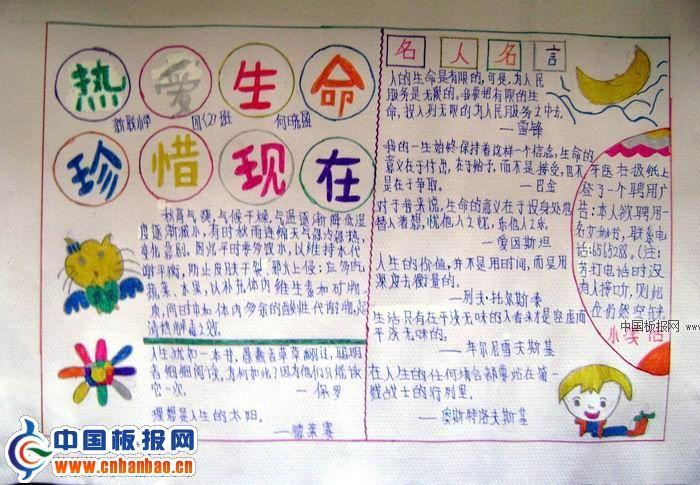 热爱生命
新联小学 四(2)班 何晓盈
珍惜现在
秋高气爽,气候干燥,气温逐渐降低湿
度逐渐减小,有时秋雨连绵天气忽冷忽热,
变化急剧。因此平时要多饮水,以维持水代
谢平衡,防止皮肤干裂,邪火上侵;应多吃
蔬菜、水果,以补充体内维生素和矿物
质,同时中和体内多余的酸性代谢物,起
清热解毒之效。
人生犹如一本书,愚蠢者草草翻过,聪明
者细细阅读。为何如此?因为他们只能读
它一次。
—保罗
理想是人生的太阳。
—德莱赛
名人名言
人的生命是有限的,可是,为人民
服务是无限的,我要把有限的生
命,投入到无限的为人民服务之中去。
—雷锋
我的一生始终保持着这样一个信念,生命的
意义在于付出,在于给予,而不是接受,也不
是在于争取。
—巴金
对于我来说,生命的意义在于设身处地
替人着想,忧他人之忧,乐他人之乐。
—爱因斯坦
人生的价值,并不是用时间,而是用
深度去衡量的。
—列夫·托尔斯泰
生活只有在平淡无味的人看来才是空虚而
平淡无味的。
—车尔尼雪夫斯基
在人生的任何场合都要站在第一
线战士的行列里。
—奥斯特洛夫斯基
牙医在报纸上
登了一个聘用广
告:本人欲聘用一
名女秘书,联系电
话:6565288。(注:
若打电话时没
有人接听,则此
位仍然空缺
小笑话
中国板报网
www
中国板报网
www.cnbanbao.cn